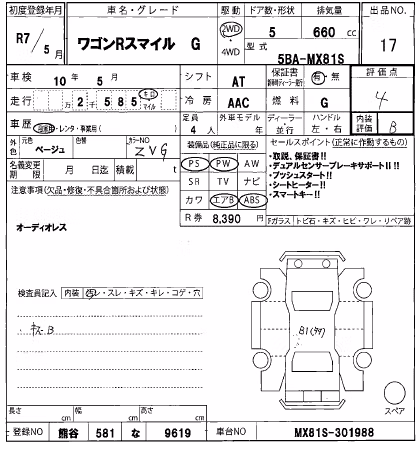 初度登録年月 車名・グレード 駆動 ドア数・形状 排気量 出品NO
R7/5月 ワゴンRスマイル G 2WD 4WD 5 660 cc 17
型式 5BA-MX81S
車検 10年 5月 シフト AT 保証書 有・無 評価点 4
走行 万 2千 585 キロ マイル 冷房 AAC 燃料 G
車歴 自家用・レンタ・事業用( ) 定員 4人 外車モデル 年 ディーラー・並行 ハンドル 左・右 内装評価 B
外色 元色 ベージュ 色替 カラーNO ZVG
名義変更期限 月 日迄 積載 t
装備品(純正品に限る)
PS PW AW
SR TV ナビ
カワ エアB ABS
R券 8,390円
セールスポイント(正常に作動するもの)
・取説、保証書!!
・デュアルセンサーブレーキサポートⅡ!!
・プッシュスタート!!
・シートヒーター!!
・スマートキー!!
注意事項(欠品・修復・不具合箇所および状態)
オーディオレス
Fガラス トビ石・キズ・ヒビ・ワレ・リペア跡
検査員記入 内装 汚レ・スレ・キズ・キレ・コゲ・穴
キズB
スペア
長さ cm 幅 cm 高さ cm
登録NO 熊谷 581 な 9619 車台NO MX81S-301988